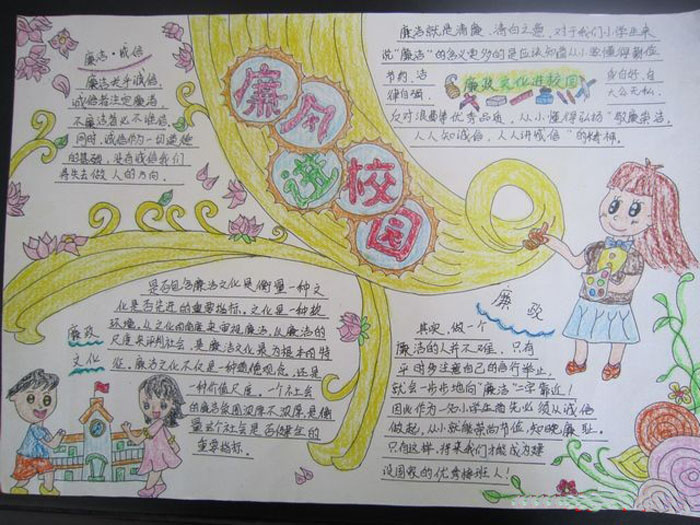 廉洁·诚信
廉洁关乎诚信,
诚信者注定廉洁,
不廉洁者必不诚信,
同时,诚信作为一切道德
的基础,丧失诚信我们
将失去做人的方向.
廉风
进校园
廉洁就是清廉、清白之意,对于我们小学生来
说"廉洁"的含义更多的是应该知道从小要懂得勤俭
节约、洁
律自绳、
廉政文化进校园
表白好,自
大公无私,
反对浪费等优秀品质,从小懂得弘扬"敬廉崇洁,
人人知诚信,人人讲诚信"的精神.
廉政
文化
是否包含廉洁文化是衡量一种文
化是否先进的重要指标,文化是一种软
环境,从文化的角度来审视廉洁,从廉洁的
尺度来评判社会,是廉洁文化最为根本的特
征,廉洁文化不仅是一种道德观念,还是
一种价值尺度,一个社会
的廉洁氛围浓厚不浓厚是衡
量这个社会是否健全的
重要指标.
廉政
其实,做一个
廉洁的人并不难,只有
平时多注意自己的言行举止,
就会一步步地向"廉洁"二字靠近!
因此作为一名小学生首先必须从诚信
做起,从小就能崇尚节俭,知晓廉耻.
只有这样,将来我们才能成为建
设国家的优秀接班人!